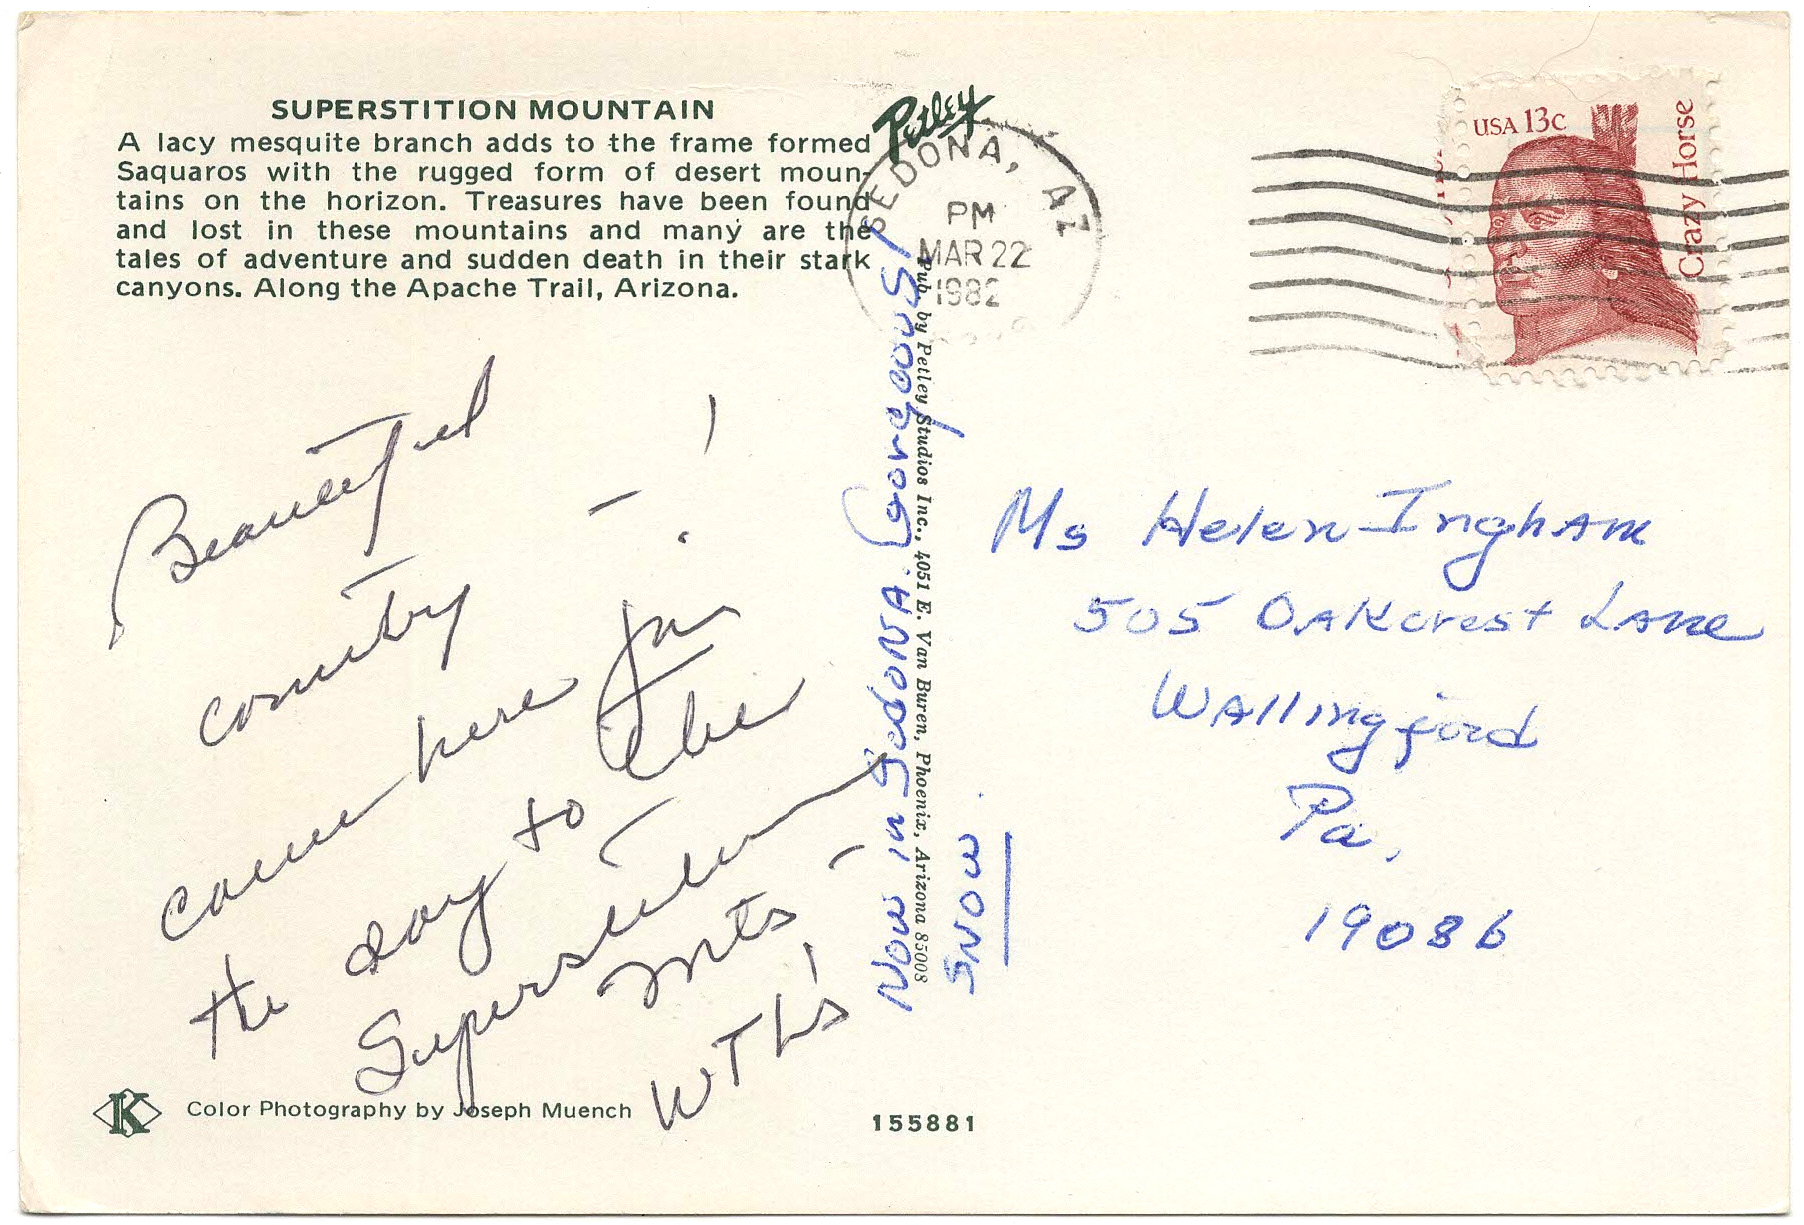 SUPERSTITION MOUNTAIN
A lacy mesquite branch adds to the frame formed
Saquaros with the rugged form of desert moun-
tains on the horizon. Treasures have been found
and lost in these mountains and many are the
tales of adventure and sudden death in their stark
canyons. Along the Apache Trail, Arizona.
Beautiful
country - !
came here for
the day to the
Superstition
mts -
WTL's!
Color Photography by Joseph Muench
K
155881
Petley
Pub. by Petley Studios Inc., 4051 E. Van Buren, Phoenix, Arizona 85008
Now in Sedona. Gorgeous!
Snow.
SEDONA, AZ
PM
MAR 22
1982
USA 13c
Crazy Horse
Ms Helen Ingham
505 Oakcrest Lane
Wallingford
Pa.
19086